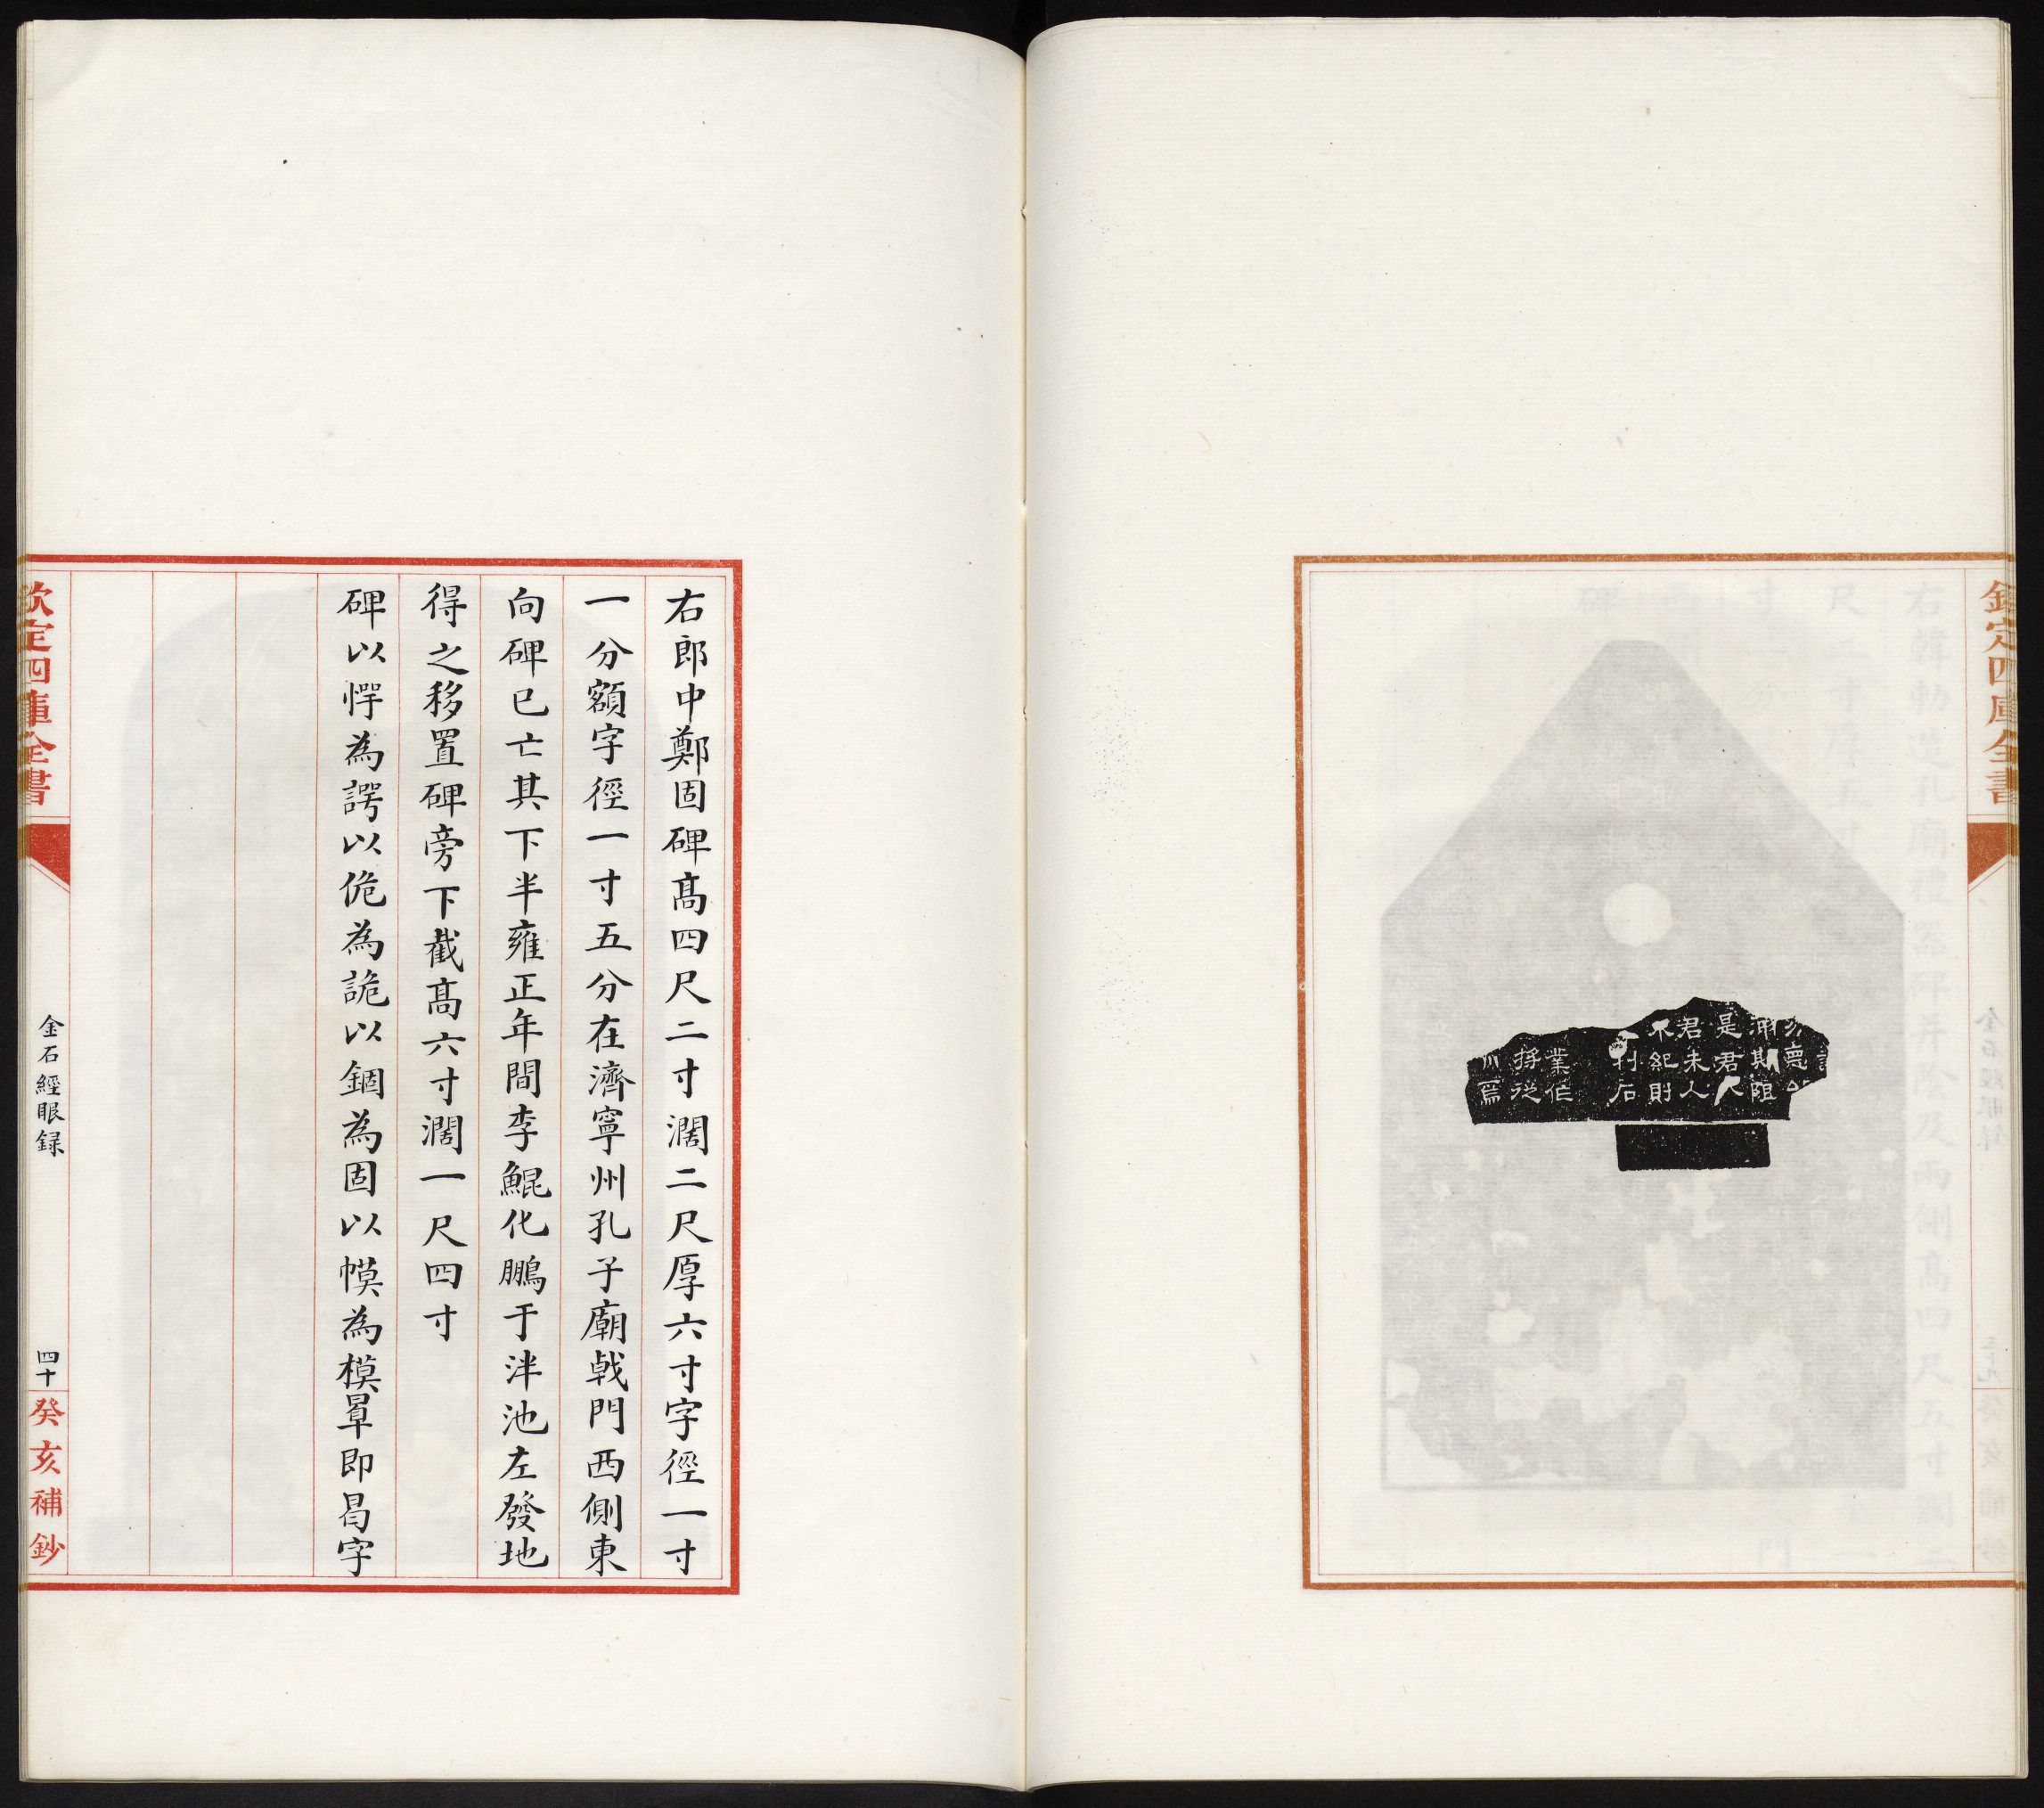 欽定四庫全書
期阻
是君大
君未人
不紀則
利石
業作
焉
右郎中鄭固碑高四尺二寸濶二尺厚六寸字徑一寸
一分額字徑一寸五分在濟寧州孔子廟戟門西側東
向碑已亡其下半雍正年間李鯤化鵬于泮池左發地
得之移置碑旁下截高六寸濶一尺四寸
碑以愕為諤以佹為詭以錮為固以幙為模即字
欽定四庫全書
金石經眼録
四十
癸亥補鈔